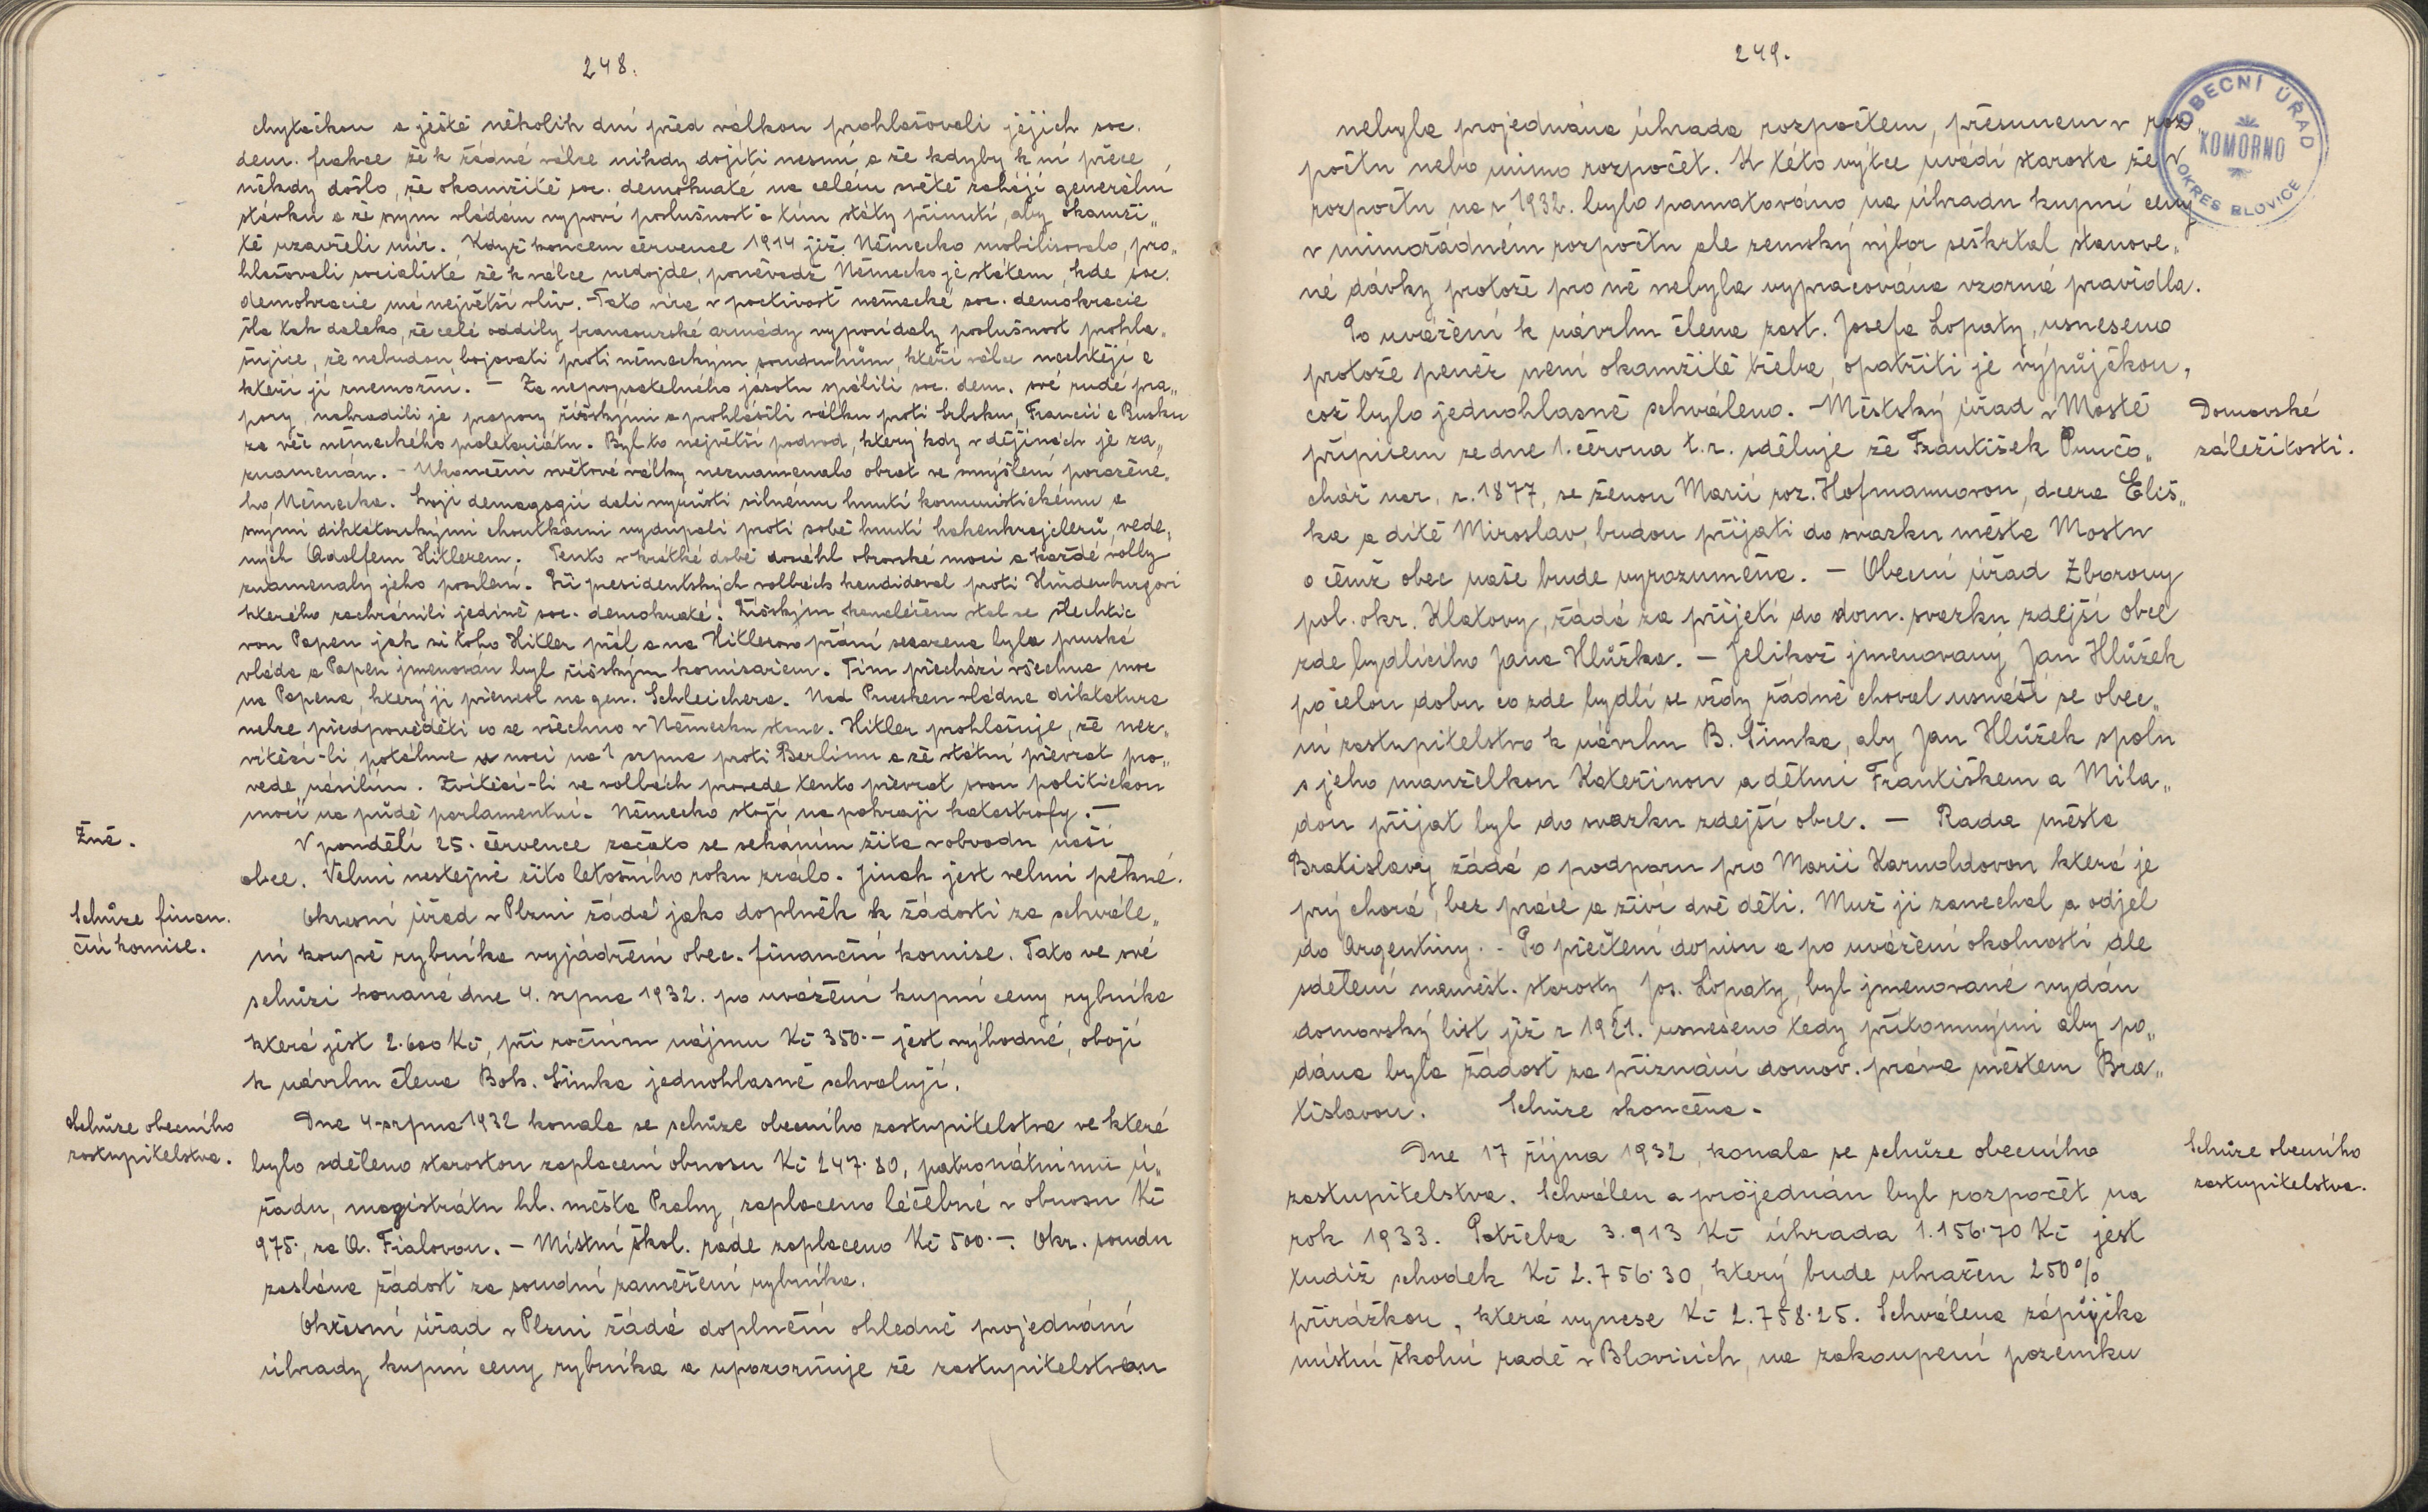 248.
chytačkou a ještě několik dní před válkou prohlašovali jejich soc.
dem. frakce že k žádné válce nikdy dojíti nesmí a že kdyby k ní přece
někdy došlo, že okamžitě soc. demokraté na celém světě zahájí generální
stávku a že svým vládám vypoví poslušnosť a tím státy přinutí, aby okamži„
tě uzavřeli mír. Když koncem července 1914 již Německo mobilisovalo, pro„
hlašovali socialisté že k válce nedojde, poněvadž Německo je státem, kde soc.
demokracie má největší vliv. Tato víra v poctivosť německé soc. demokracie
šla tak daleko, že celé oddíly francouzské armády vypovídaly poslušnost prohla„
šujíce, že nebudou bojovati proti německým soudruhům, kteří válce nechtějí a
kteří ji znemožní. — Za nepopsatelného jásotu spálili soc. dem. své rudé pra„
pory, nahradili je prapory říšskými a prohlásili válku proti Srbsku, Francii a Rusku
za věc německého proletariátu. Byl to největší podvod, který kdy v dějinách je za„
znamenán. — Ukončení světové války neznamenalo obrat ve smýšlení poraženе„
ho Německa. Svojí demagogií dali vyrůsti silnému hnutí komunistickému a
svými diktátorskými choutkami vydupali proti sobě hnutí hakenkrajclerů, vede„
ných Adolfem Hitlerem. Tento v krátké době dosáhl obrovské moci a každé volby
znamenaly jeho posílení. Při presidentských volbách kandidoval proti Hindenburgovi
kterého zachránili jedině soc. demokraté. Říšským kancléřem stal se šlechtic
von Papen jak si toho Hitler přál a na Hitlerovo přání sesazena byla pruská
vláda a Papen jmenován byl říšským komisařem. Tím přechází všechna moc
na Papena, který ji přenesl na gen. Schleichera. Nad Pruskem vládne diktatura
nelze předpověděti co se všechno v Německu stane. Hitler prohlašuje, že nez„
vítězí-li, potáhne v noci na 1 srpna proti Berlinu a že státní převrat pro„
vede násilím. Zvítězí-li ve volbách provede tento převrat svou politickou
mocí na půdě parlamentní. Německo stojí na pokraji katastrofy. —
Žně.
V pondělí 25. července začato se sekáním žita v obvodu naší
obce. Velmi nestejně žito letošního roku zrálo. Jinak jest velmi pěkné.
Schůze finan.
ční komise.
Okresní úřad v Plzni žádá jako doplněk k žádosti za schvále„
ní koupě rybníka vyjádření obec. finanční komise. Tato ve své
schůzi konané dne 4. srpna 1932. po uvážení kupní ceny rybníka
která jest 2.600 Kč, při ročním nájmu Kč 350.— jest výhodné, obojí
k návrhu člena Boh. Šimka jednohlasně schvalují.
Schůze obecního
zastupitelstva.
Dne 4. srpna 1932 konala se schůze obecního zastupitelstva ve které
bylo sděleno starostou zaplacení obnosu Kč 247.80, patronátnímu ú„
řadu, magistrátu hl. města Prahy, zaplaceno léčebné v obnosu Kč
975., za A. Fialovou. — Místní škol. rade zaplaceno Kč 500.—. Okr. soudu
zaslána žádosť za soudní zaměření rybníka.
Okresní úřad v Plzni žádá doplnění ohledně projednání
úhrady kupní ceny rybníka a upozorňuje že zastupitelstvem
249.
OBECNÍ ÚŘAD
KOMORNO
OKRES BLOVICE
nebyla projednána úhrada rozpočtem, přesunem v roz„
počtu nebo mimo rozpočet. K této výtce uvádí starosta že v
rozpočtu na r 1932. bylo pamatováno na úhradu kupní ceny
v mimořádném rozpočtu ale zemský výbor seškrtal stanove„
né dávky protože pro ně nebyla vypracována vzorná pravidla.
Po uvážení k návrhu člena zast. Josefa Lopaty, usneseno
protože peněz není okamžitě třeba, opatřiti je výpůjčkou,
což bylo jednohlasně schváleno. — Městský úřad v Mostě
Domovské
záležitosti.
přípisem ze dne 1. června t. r. sděluje že František Punčo„
chář nar. r. 1877, se ženou Marií roz. Hofmannovou, dcera Eliš„
ka a dítě Miroslav, budou přijati do svazku města Mostu
o čemž obec naše bude vyrozuměna. — Obecní úřad Zborovy
pol. okr. Klatovy, žádá za přijetí do dom. svazku zdejší obce
zde bydlícího Jana Hlůžka. — Jelikož jmenovaný Jan Hlůžek
po celou dobu co zde bydlí se vždy řádně choval usnáší se obec„
ní zastupitelstvo k návrhu B. Šimka, aby Jan Hlůžek spolu
s jeho manželkou Kateřinou a dětmi Františkem a Mila„
dou přijat byl do svazku zdejší obce. — Rada města
Bratislavy žádá o podporu pro Marii Karnoldovou která je
prý chorá, bez práce a živí dvě děti. Muž ji zanechal a odjel
do Argentiny. — Po přečtení dopisu a po uvážení okolností dle
sdělení naměst. starosty Jos. Lopaty, byl jmenované vydán
domovský list již r 1921. usneseno tedy přítomnými aby po„
dána byla žádost za přiznání domov. práva městem Bra„
tislavou. Schůze skončena.
Schůze obecního
zastupitelstva.
Dne 17 října 1932, konala se schůze obecního
zastupitelstva. Schválen a projednán byl rozpočet na
rok 1933. Potřeba 3.913 Kč úhrada 1.156.70 Kč jest
tudíž schodek Kč 2.756.30, který bude uhražen 250%
přirážkou, která vynese Kč 2.758.25. Schválena zápůjčka
místní školní radě v Blovicích, na zakoupení pozemku